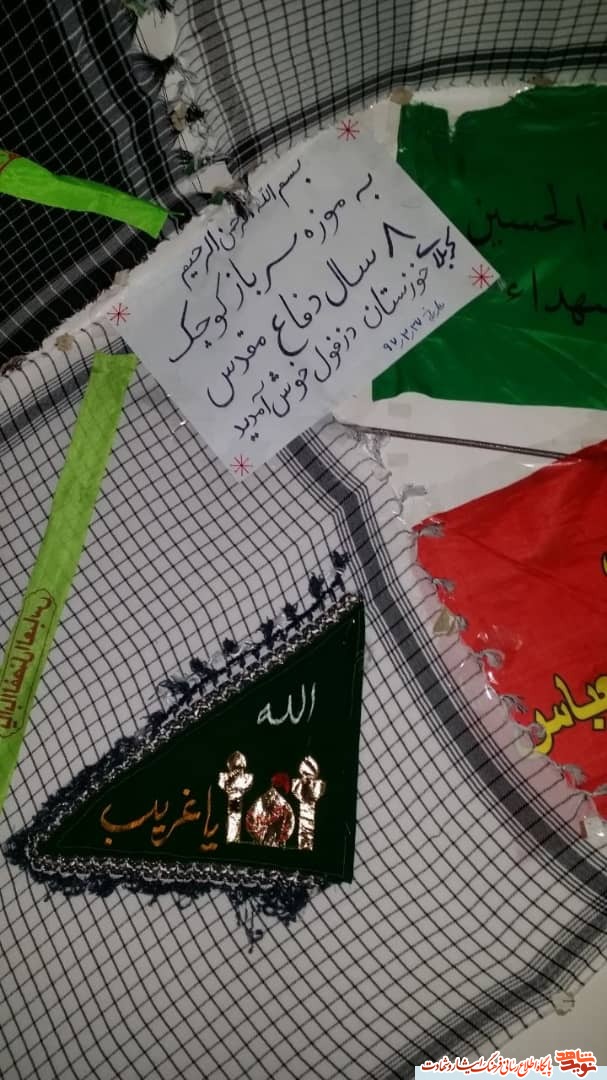 بسم الله الرحمن الرحیم
به موزه سرباز کوچک
۸ سال دفاع مقدس
خوزستان دزفول خوش آمدید
الحسین
شهداء
عباس
الله
یا غریب
نوید شاهد
پایگاه اطلاع رسانی فرهنگ ایثار و شهادت